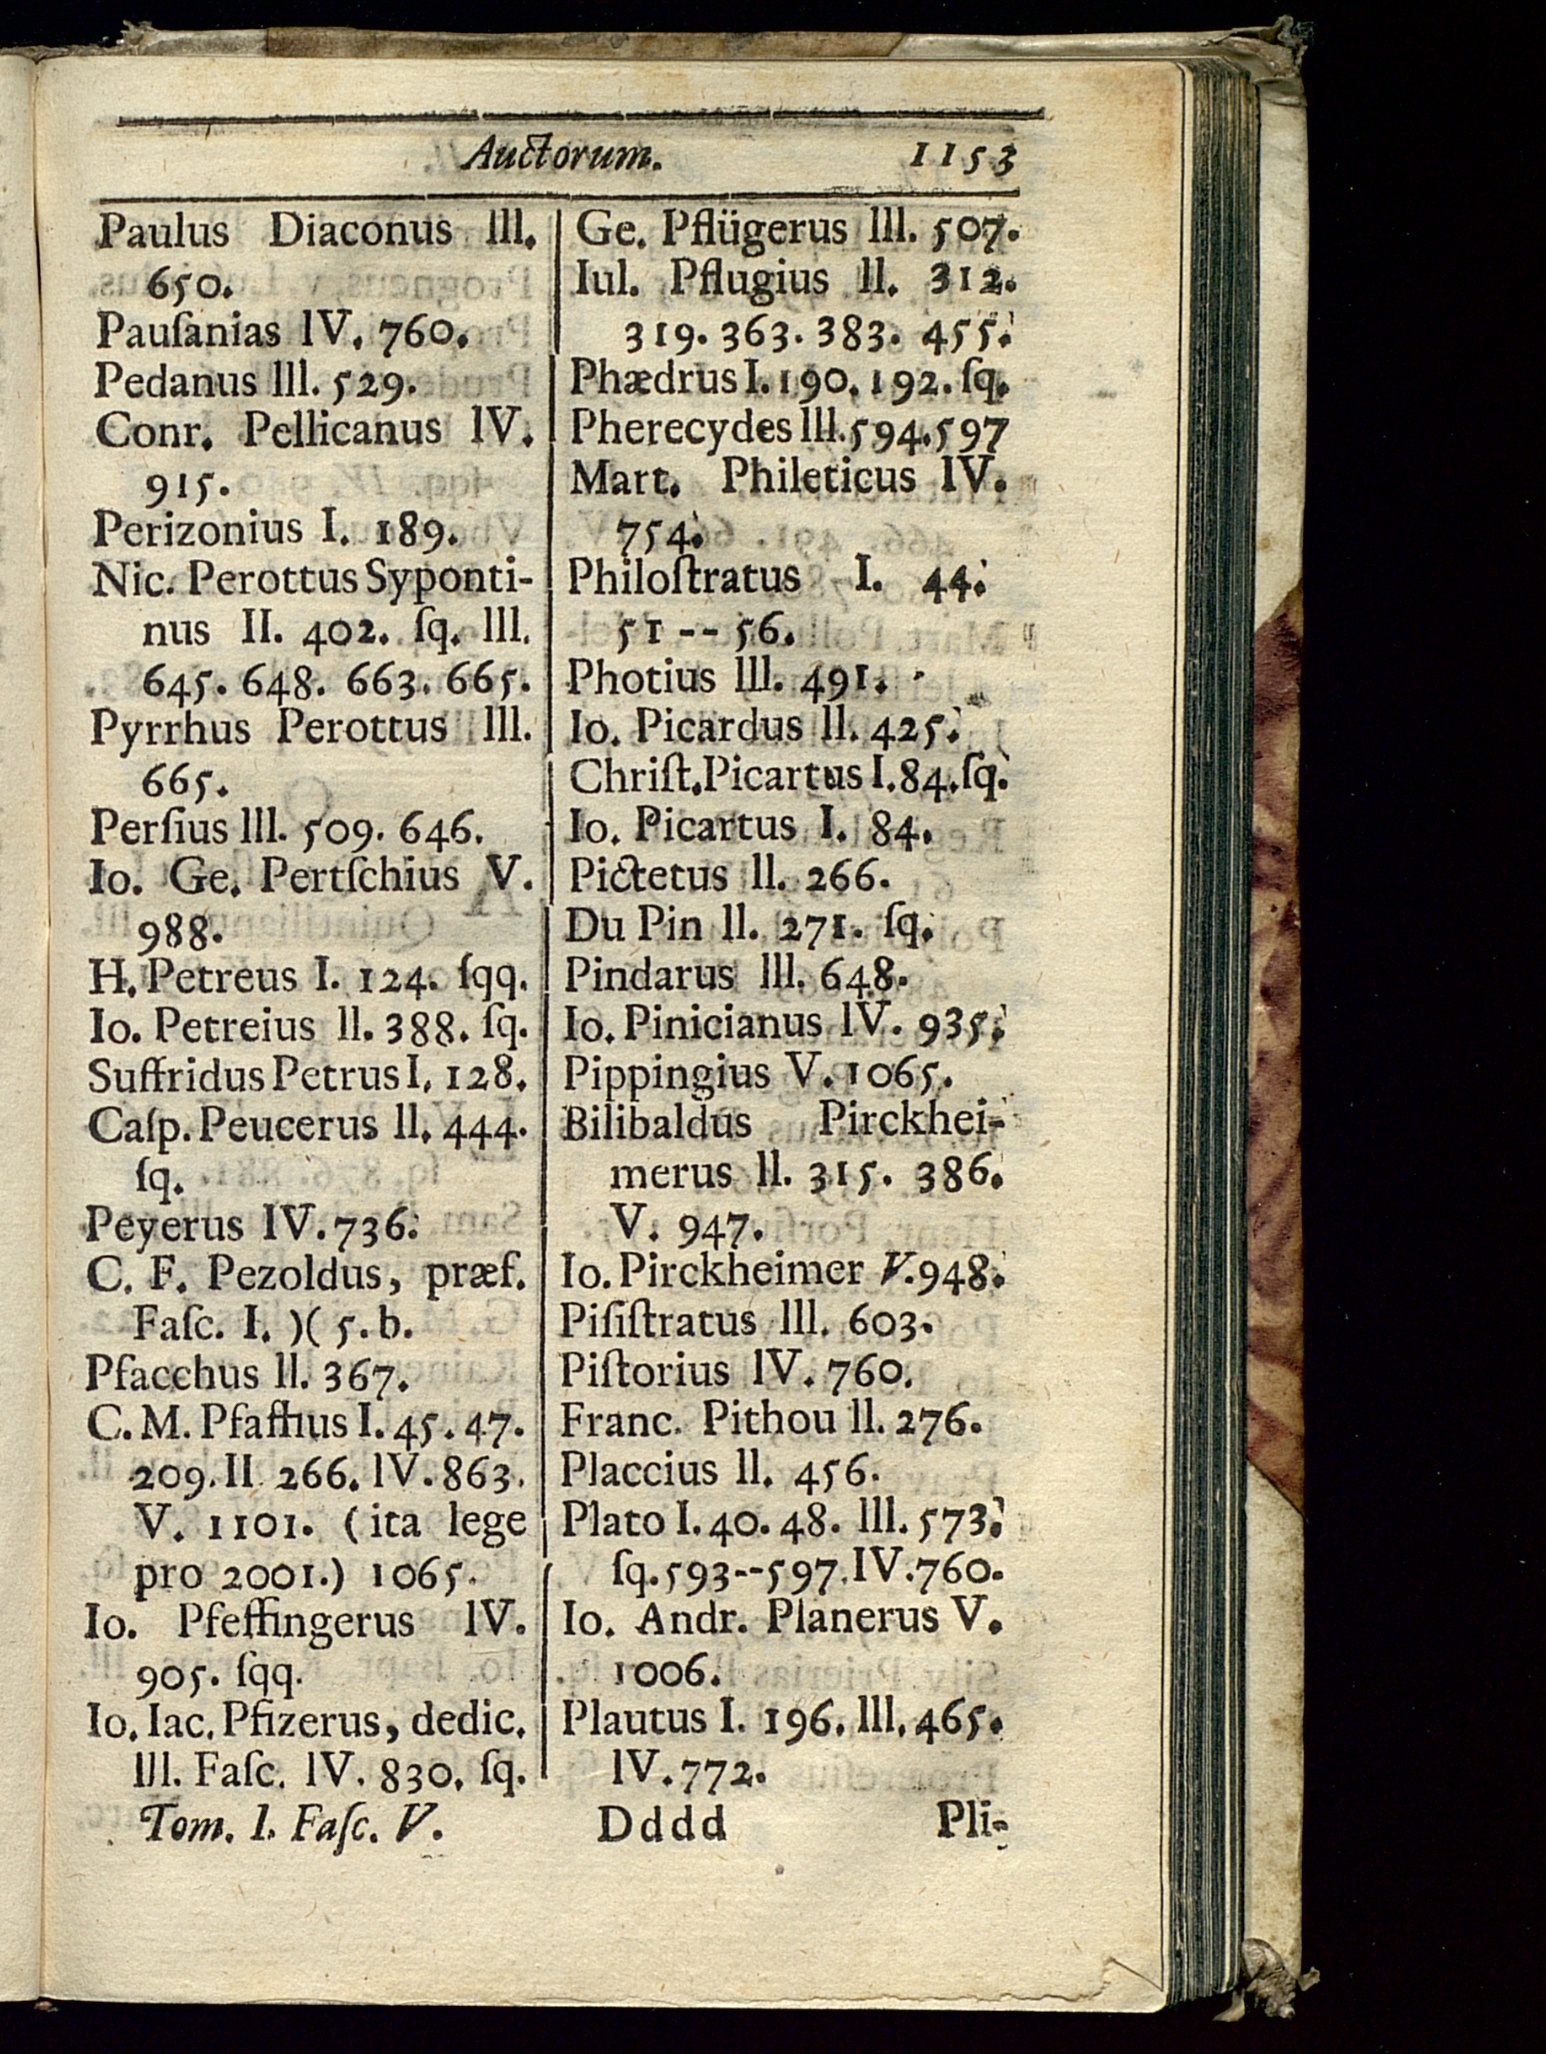 Auctorum. 1153
Paulus Diaconus lll.
650.
Pauſanias lV. 760.
Pedanus lll. 529.
Conr. Pellicanus lV.
915.
Perizonius I. 189.
Nic. Perottus Syponti-
nus II. 402. ſq. lll.
645. 648. 663. 665.
Pyrrhus Perottus lll.
665.
Perſius lll. 509. 646.
Io. Ge. Pertſchius V.
988.
H. Petreus I. 124. ſqq.
Io. Petreius ll. 388. ſq.
Suffridus Petrus I. 128.
Caſp. Peucerus ll. 444.
ſq.
Peyerus IV. 736.
C. F. Pezoldus, præf.
Faſc. I. )( 5. b.
Pfacchus ll. 367.
C. M. Pfaffius I. 45. 47.
209. II 266. lV. 863.
V. 1101. (ita lege
pro 2001.) 1065.
Io. Pfeffingerus lV.
905. ſqq.
Io. Iac. Pfizerus, dedic.
lll. Faſc. lV. 830. ſq.
Ge. Pflügerus lll. 507.
Iul. Pflugius ll. 312.
319. 363. 383. 455.
Phædrus I. 190. 192. ſq.
Pherecydes lll. 594. 597
Mart. Phileticus lV.
754.
Philoſtratus I. 44.
51 -- 56.
Photius lll. 491.
Io. Picardus ll. 425.
Chriſt. Picartus I. 84. ſq.
Io. Picartus I. 84.
Pictetus ll. 266.
Du Pin ll. 271. ſq.
Pindarus lll. 648.
Io. Pinicianus lV. 935.
Pippingius V. 1065.
Bilibaldus Pirckhei-
merus ll. 315. 386.
V. 947.
Io. Pirckheimer V. 948.
Piſiſtratus lll. 603.
Piſtorius lV. 760.
Franc. Pithou ll. 276.
Placcius ll. 456.
Plato I. 40. 48. lll. 573.
ſq. 593--597. IV. 760.
Io. Andr. Planerus V.
1006.
Plautus I. 196. lll. 465.
lV. 772.
Tom. I. Faſc. V. Dddd Pli-